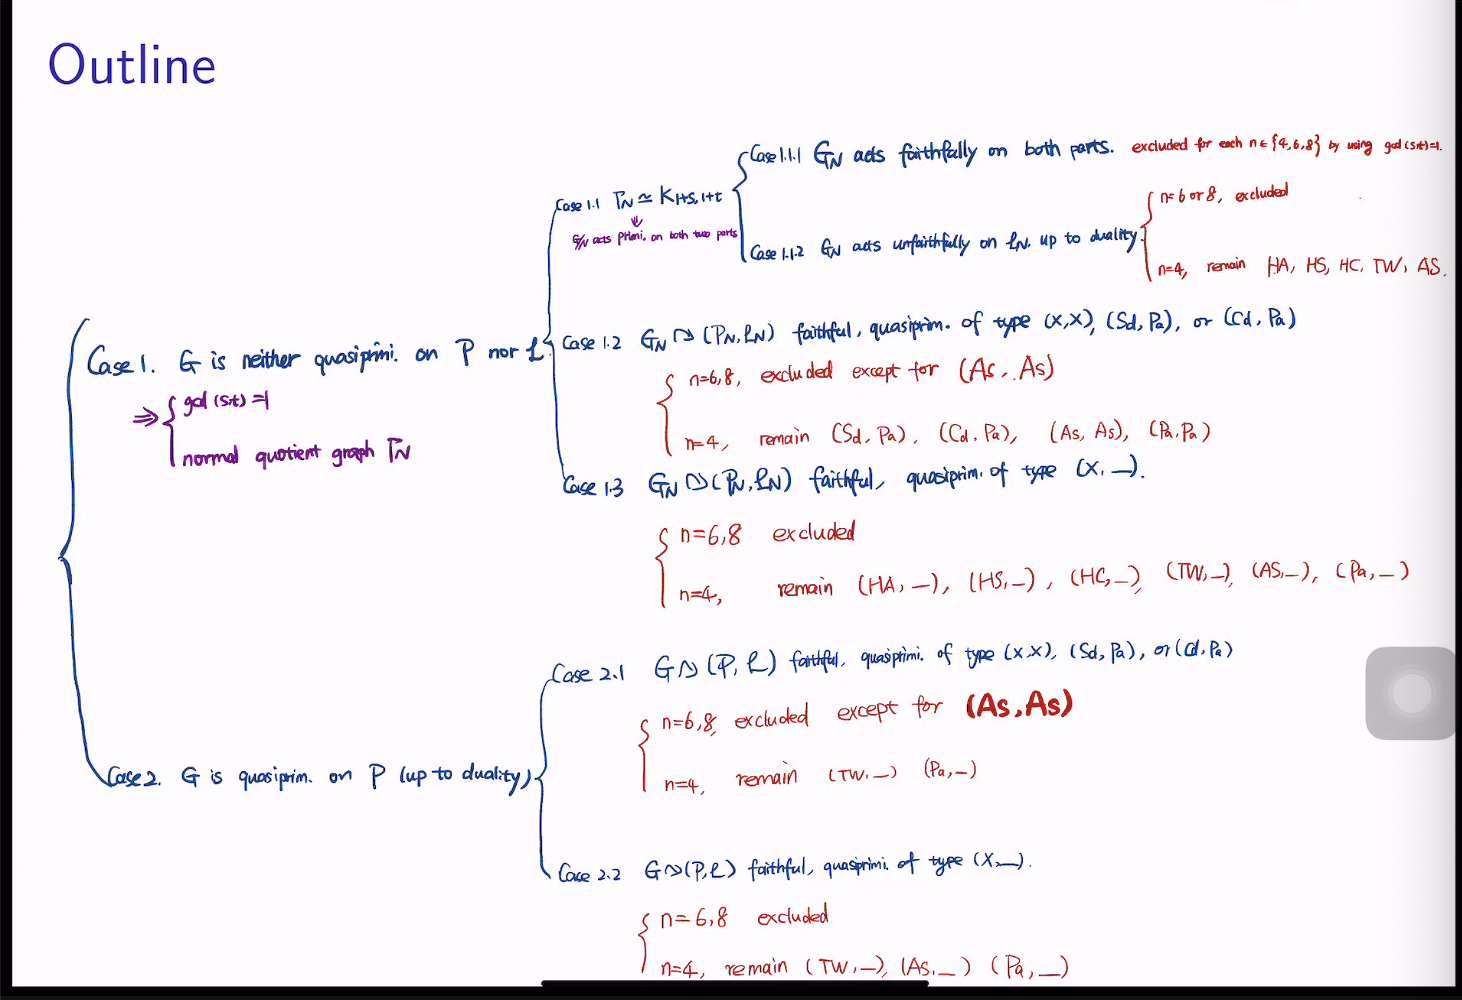 Outline
Case 1. G is neither quasiprimi. on P nor L.
⇒ { gcd(s,t)=1
normal quotient graph Γ_N
Case 1.1 Γ_N ≃ K_{1+s,1+t}
⇓
G/N acts primi. on both two parts
Case 1.1.1 G_N acts faithfully on both parts. excluded for each n∈{4,6,8} by using gcd(s,t)=1.
Case 1.1.2 G_N acts unfaithfully on L_N. up to duality.
n=6 or 8, excluded
n=4, remain HA, HS, HC, TW, AS.
Case 1.2 G_N ↷ (P_N, L_N) faithful, quasiprim. of type (X,X), (Sd, Pa), or (Cd, Pa)
n=6,8, excluded except for (As, As)
n=4, remain (Sd, Pa), (Cd, Pa), (As, As), (Pa, Pa)
Case 1.3 G_N ↷ (P_N, L_N) faithful, quasiprim. of type (X, —).
n=6,8 excluded
n=4, remain (HA, —), (HS, —), (HC, —), (TW, —), (AS, —), (Pa, —)
Case 2. G is quasiprim. on P (up to duality)
Case 2.1 G ↷ (P, L) faithful, quasiprimi. of type (X,X), (Sd, Pa), or (Cd, Pa)
n=6,8, excluded except for (As, As)
n=4, remain (TW, —) (Pa, —)
Case 2.2 G ↷ (P, L) faithful, quasiprimi. of type (X, —).
n=6,8 excluded
n=4, remain (TW, —), (As, —) (Pa, —)